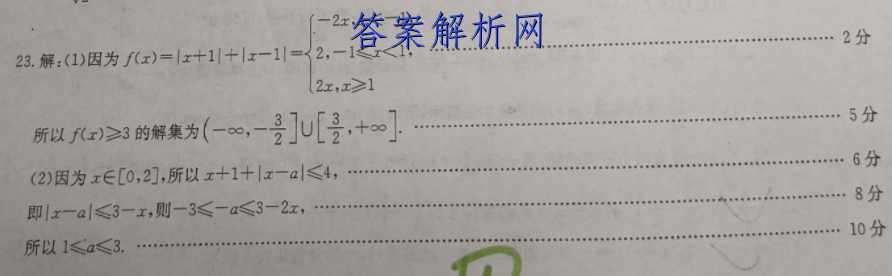 答案解析网
23.解:(1)因为 f(x)=|x+1|+|x-1|={-2x,
2,-1≤x<1, 2分
2x,x≥1
所以 f(x)≥3 的解集为(-∞,-3/2]∪[3/2,+∞]. 5分
(2)因为 x∈[0,2],所以 x+1+|x-a|≤4, 6分
即|x-a|≤3-x,则-3≤-a≤3-2x, 8分
所以 1≤a≤3. 10分